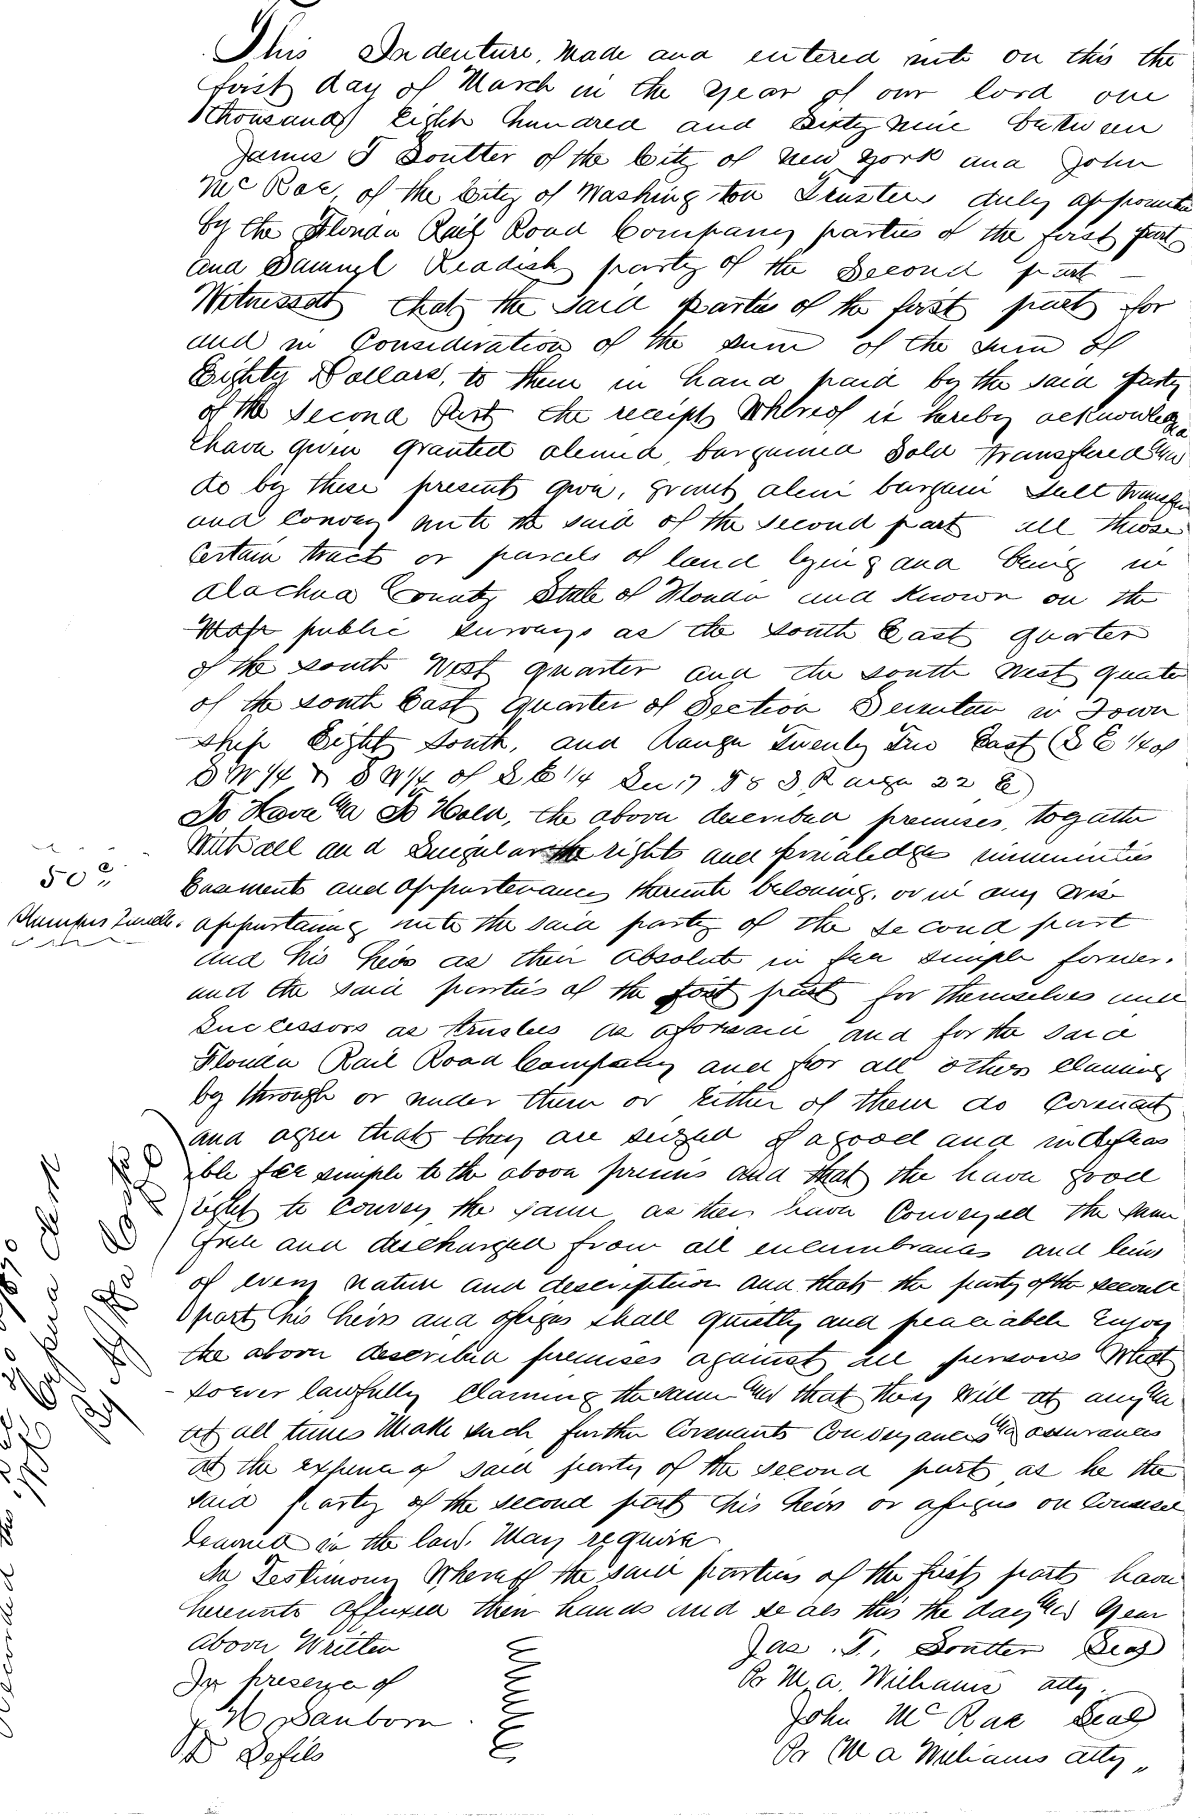 This Indenture, Made and entered into on this the
first day of March in the year of our lord one
thousand Eight hundred and Sixty nine between
James T Soutter of the City of New York and John
McRae, of the City of Washington Trustees duly appointed
by the Florida Rail Road Company parties of the first part
and Samuel Readish party of the Second part
Witnesseth that the said parties of the first part for
and in Consideration of the sum of the sum of
Eighty Dollars, to them in hand paid by the said party
of the Second Part the receipt Whereof is hereby acknowledged
have given granted aliend, bargained Sold transfered and
do by these presents give, grant alien bargain sell transfer
and convey unto the said of the second part all those
Certain tracts or parcels of land lying and being in
Alachua County State of Florida and Known on the
Map public surveys as the south East quarter
of the south West quarter and the south West quater
of the south East quarter of Section Seventeen in Town
ship Eight South, and Range Twenty Two East (S E 1/4 of
S W 1/4 & S W 1/4 of S E 1/4 Sec 17 T 8 S Range 22 E)
To Have & To Hold, the above described premises, togather
With all and Singular the rights and privaledges immunities
Easments and appurtenances thereunto belonging, or in any wise
50c
Stamps Cancelled.
appertaining unto the said party of the second part
and his heirs as their absolute in fee simple forever.
and the said parties of the first part for themselves and
Successors as trustees as aforesaid and for the said
Florida Rail Road Company and for all others claiming
by through or under them or Either of them do Covenant
and agree that they are seized of a good and indefeas
ible fee simple to the above premis and that the have good
right to convey the same as they have Conveyed the same
free and discharged from all encumbrances and liens
of every nature and description and that the party of the second
part his heirs and assigns shall quietly and peaciable Enjoy
the above described premises against all persons What
soever lawfully claiming the same and that they will at any &
at all times Make such further Covenants Conveyances & assurances
at the expence of said party of the second part as he the
said party of the second part his heirs or assigns or Counsel
learned in the law May require
In Testimony Whereof the said parties of the first parts have
hereunto affixed their hands and seals this the day and Year
above Written
In presence of
J H Sanborn.
D Lefils
Jas. T. Soutter Seal
Pr M. A. Williams atty.
John McRae Seal
Pr M A Williams atty"
Recorded this Dec 20 1870